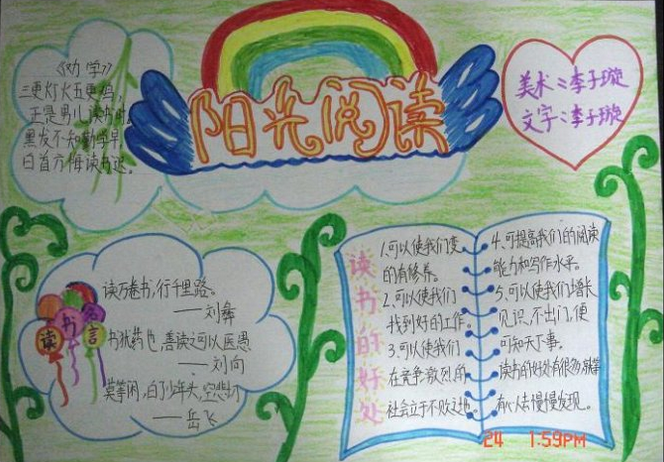 《劝学》
三更灯火五更鸡，
正是男儿读书时。
黑发不知勤学早，
白首方悔读书迟。
阳光阅读
美术：李子璇
文字：李子璇
读书名言
读万卷书，行千里路。
——刘彝
书犹药也，善读之可以医愚
——刘向
莫等闲，白了少年头，空悲切
——岳飞
读书的好处
1.可以使我们变
的有修养。
2.可以使我们
找到好的工作。
3.可以使我们
在竞争激烈的
社会立于不败之地。
4.可提高我们的阅读
能力和写作水平。
5.可以使我们增长
见识，不出门，便
可知天下事。
读书的好处有很多，就等
有心人去慢慢发现。
24 1:59PM